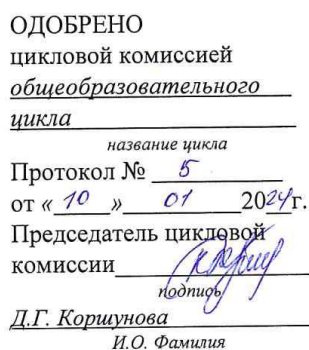 ОДОБРЕНО
цикловой комиссией
общеобразовательного
цикла
название цикла
Протокол № 5
от « 10 » 01 2024г.
Председатель цикловой
комиссии
подпись
Д.Г. Коршунова
И.О. Фамилия